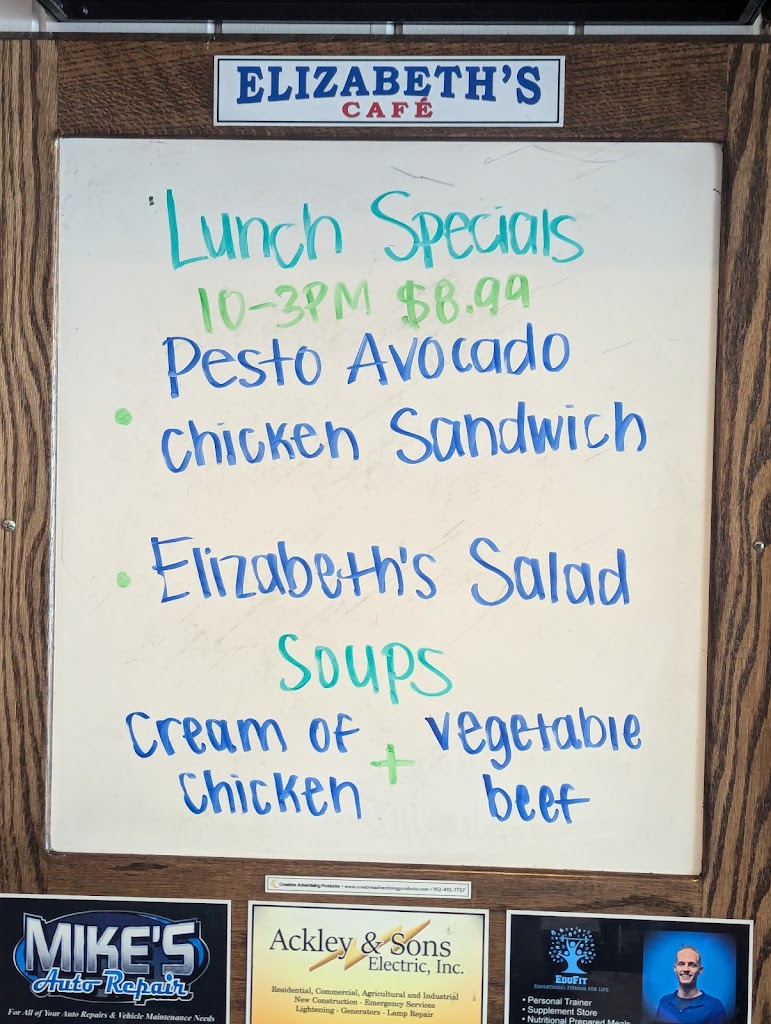 ELIZABETH'S
CAFÉ
Lunch Specials
10-3PM $8.99
Pesto Avocado
• Chicken Sandwich
• Elizabeth's Salad
Soups
Cream of + vegetable
Chicken beef
Creative Advertising Products • www.creativeadvertisingproducts.com • 952-492-7727
MIKE'S
Auto Repair
For All of Your Auto Repairs & Vehicle Maintenance Needs
Ackley & Sons
Electric, Inc.
Residential, Commercial, Agricultural and Industrial
New Construction - Emergency Services
Lightening - Generators - Lamp Repair
EDUFIT
EDUCATIONAL FITNESS FOR LIFE
• Personal Trainer
• Supplement Store
• Nutritional Prepared Meals